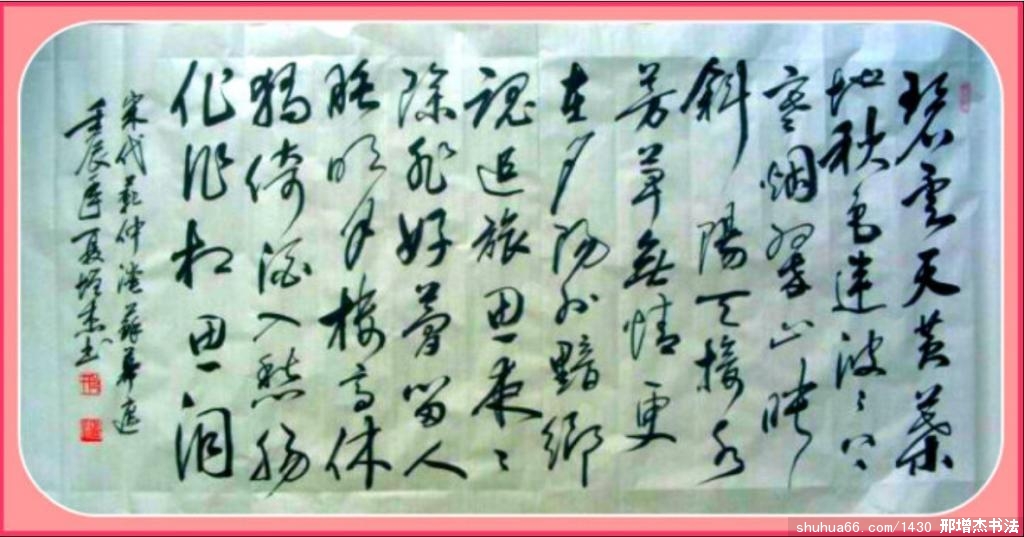 碧雲天黄葉
地秋色連波〻上
寒烟翠山映
斜陽天接水
芳草無情更
在夕陽外黯鄉
魂追旅思夜〻
除非好夢留人
睡明月樓高休
獨倚酒入愁腸
化作相思泪
宋代範仲淹蘇幕遮
壬辰年夏增杰书
shuhua66.com/1430 邢增杰书法